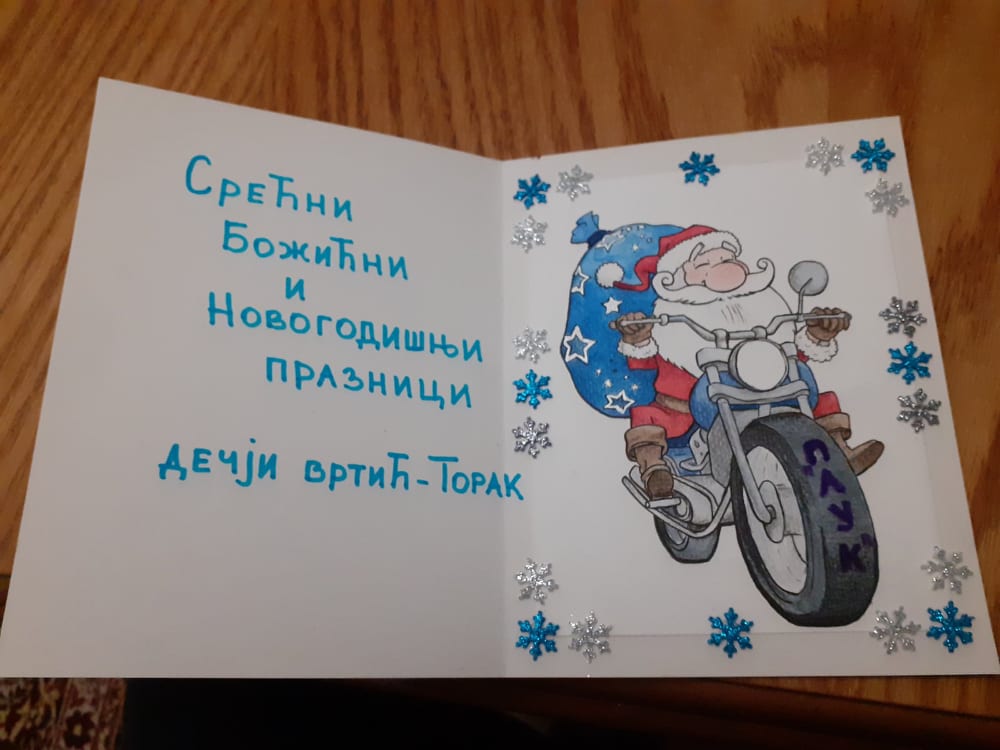 Срећни
Божићни
и
Новогодишњи
празници
дечји вртић-Торак
"ПЛУК"